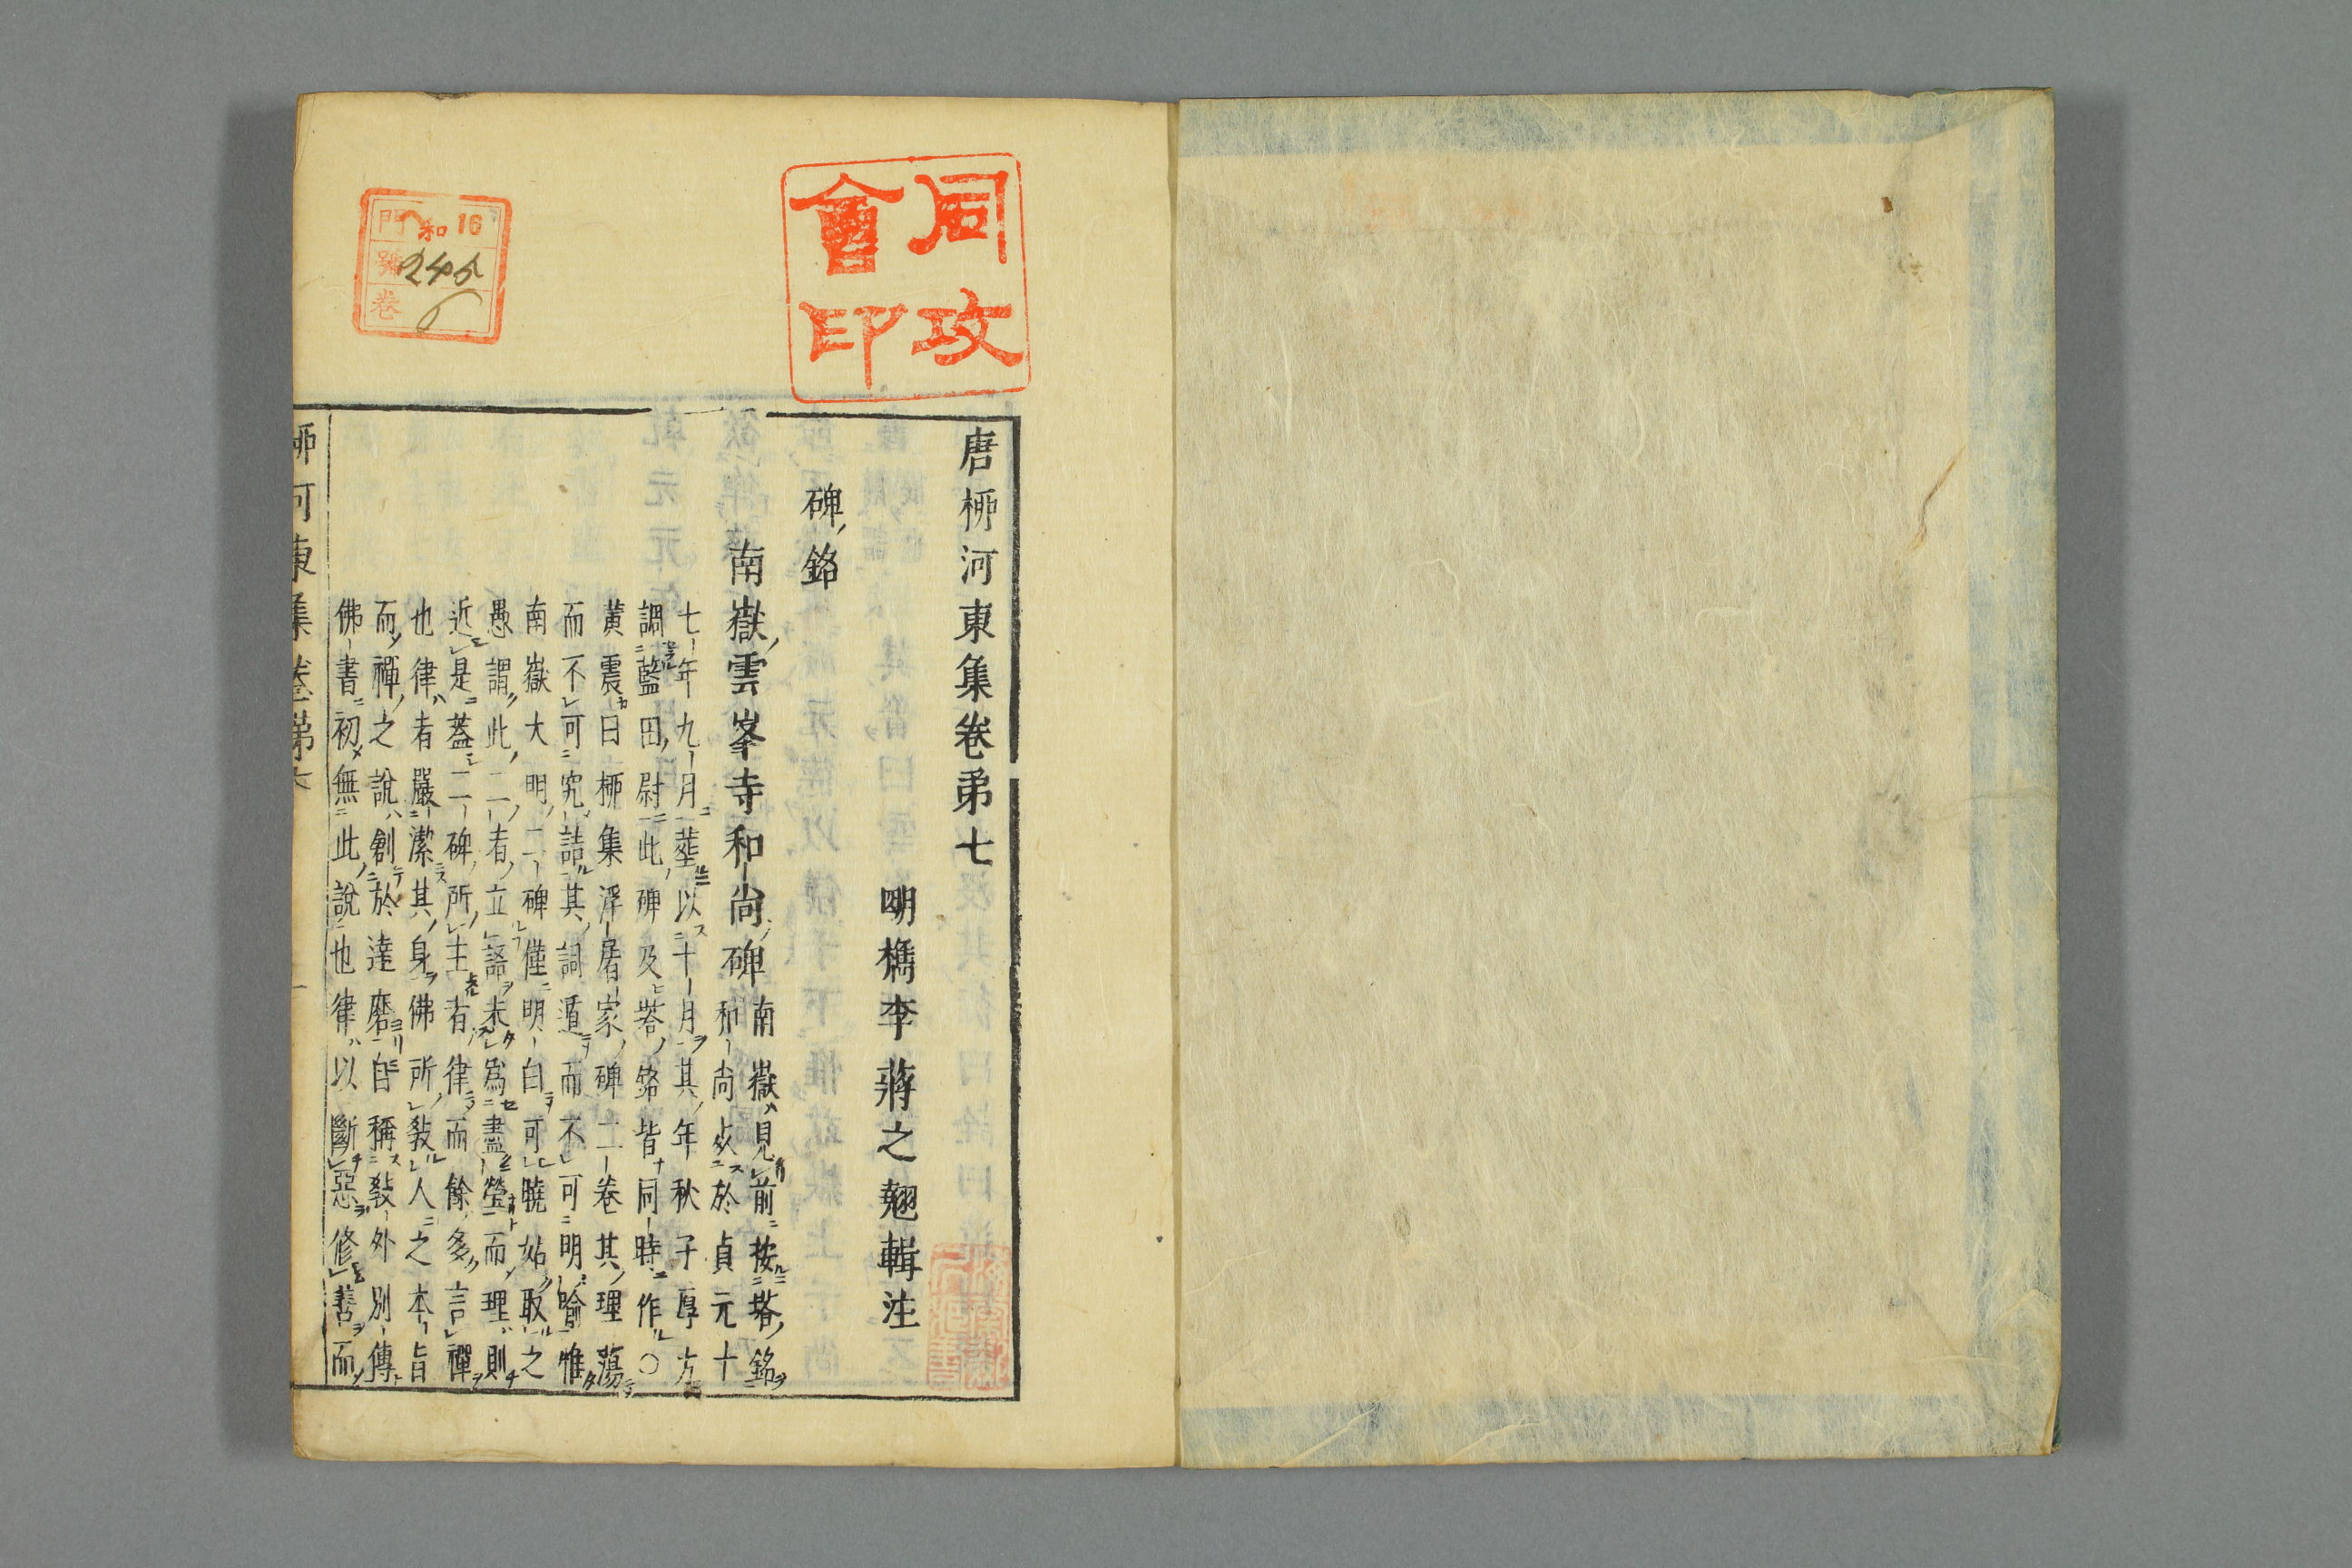 同攻
會印
和 16
門
號 245
卷 6
唐栁河東集卷弟七
明檇李蔣之翹輯注
碑銘
南嶽雲峯寺和尚碑
南嶽見前按塔銘
和尚歿於貞元十
七年九月葬以十月其年秋子厚方
調藍田尉此碑及塔銘皆同時作〇
黃震曰栁集浮屠家碑二卷其理蕩
而不可究詰其詞遁而不可明喻惟
南嶽大明二碑僅明白可曉姑取之
愚謂此二者立語未爲盡瑩而理則
近是蓋二碑所主者律而餘多言禪
也律者嚴潔其身佛所教人之本旨
而禪之說創於達磨自稱教外別傳
佛書初無此說也律以斷惡修善而
栁河東集卷第七 一